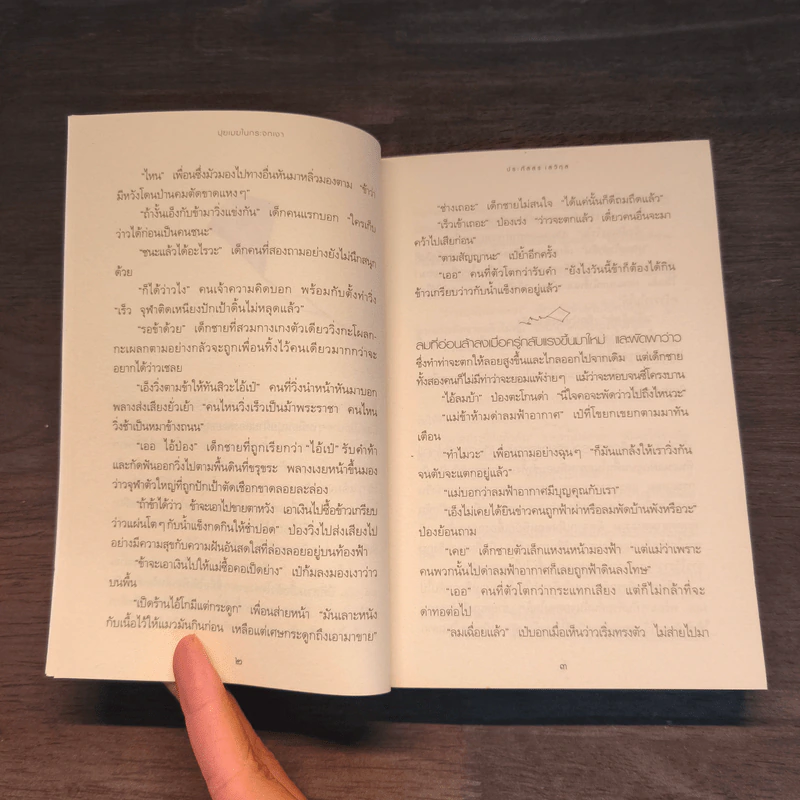 ปุยเมฆในกระจกเงา
"ไหน" เพื่อนซึ่งมัวมองไปทางอื่นหันมาหลิ่วมองตาม "ข้าว่า
มีหวังโดนป่านคมตัดขาดแหงๆ"
"ถ้างั้นเอ็งกับข้ามาวิ่งแข่งกัน" เด็กคนแรกบอก "ใครเก็บ
ว่าวได้ก่อนเป็นคนชนะ"
"ชนะแล้วได้อะไรวะ" เด็กคนที่สองถามอย่างยังไม่นึกสนุก
ด้วย
"ก็ได้ว่าวไง" คนเจ้าความคิดบอก พร้อมกับตั้งท่าวิ่ง
"เร็ว จุฬาติดเหนียงปักเป้าดิ้นไม่หลุดแล้ว"
"รอข้าด้วย" เด็กชายที่สวมกางเกงตัวเดียววิ่งกะโผลก-
กะเผลกตามอย่างกลัวจะถูกเพื่อนทิ้งไว้คนเดียวมากกว่าจะ
อยากได้ว่าวเชลย
"เอ็งวิ่งตามข้าให้ทันสิวะไอ้เป๋" คนที่วิ่งนำหน้าหันมาบอก
พลางส่งเสียงยั่วเย้า "คนไหนวิ่งเร็วเป็นม้าพระราชา คนไหน
วิ่งช้าเป็นหมาข้างถนน"
"เออ ไอ้ป่อง" เด็กชายที่ถูกเรียกว่า "ไอ้เป๋" รับคำท้า
และกัดฟันออกวิ่งไปตามพื้นดินที่ขรุขระ พลางเงยหน้าขึ้นมอง
ว่าวจุฬาตัวใหญ่ที่ถูกปักเป้าตัดเชือกขาดลอยละล่อง
"ถ้าข้าได้ว่าว ข้าจะเอาไปขายตาหวัง เอาเงินไปซื้อข้าวเกรียบ
ว่าวแผ่นโตๆ กับน้ำแข็งกดกินให้ช่ำปอด" ป่องวิ่งไปส่งเสียงไป
อย่างมีความสุขกับความฝันอันสดใสที่ล่องลอยอยู่บนท้องฟ้า
"ข้าจะเอาเงินไปให้แม่ซื้อคอเป็ดย่าง" เป๋ก้มลงมองเงาว่าว
บนพื้น
"เป็ดร้านไอ้โกมีแต่กระดูก" เพื่อนส่ายหน้า "มันเลาะหนัง
กับเนื้อไว้ให้แมวมันกินก่อน เหลือแต่เศษกระดูกถึงเอามาขาย"
๒
ประภัสสร เสวิกุล
"ช่างเถอะ" เด็กชายไม่สนใจ "ได้แค่นั้นก็ดีถมถืดแล้ว"
"เร็วเข้าเถอะ" ป่องเร่ง "ว่าวจะตกแล้ว เดี๋ยวคนอื่นจะมา
คว้าไปเสียก่อน"
"ตามสัญญานะ" เป๋ย้ำอีกครั้ง
"เออ" คนที่ตัวโตกว่ารับคำ "ยังไงวันนี้ข้าก็ต้องได้กิน
ข้าวเกรียบว่าวกับน้ำแข็งกดอยู่แล้ว"
ลมที่อ่อนล้าลงเมื่อครู่กลับแรงขึ้นมาใหม่ และพัดพาว่าว
ซึ่งทำท่าจะตกให้ลอยสูงขึ้นและไกลออกไปจากเดิม แต่เด็กชาย
ทั้งสองคนก็ไม่มีท่าว่าจะยอมแพ้ง่ายๆ แม้ว่าจะหอบจนซี่โครงบาน
"ไอ้ลมบ้า" ป่องตะโกนด่า "นี่ใจคอจะพัดว่าวไปถึงไหนวะ"
"แม่ข้าห้ามด่าลมฟ้าอากาศ" เป๋ที่โขยกเขยกตามมาทัน
เตือน
"ทำไมวะ" เพื่อนถามอย่างฉุนๆ "ก็มันแกล้งให้เราวิ่งกัน
จนตับจะแตกอยู่แล้ว"
"แม่บอกว่าลมฟ้าอากาศมีบุญคุณกับเรา"
"เอ็งไม่เคยได้ยินข่าวคนถูกฟ้าผ่าหรือลมพัดบ้านพังหรือวะ"
ป่องย้อนถาม
"เคย" เด็กชายตัวเล็กแหงนหน้ามองฟ้า "แต่แม่ว่าเพราะ
คนพวกนั้นไปด่าลมฟ้าอากาศก็เลยถูกฟ้าดินลงโทษ"
"เออ" คนที่ตัวโตกว่ากระแทกเสียง แต่ก็ไม่กล้าที่จะ
ด่าทอต่อไป
"ลมเฉื่อยแล้ว" เป๋บอกเมื่อเห็นว่าวเริ่มทรงตัว ไม่ส่ายไปมา
๓